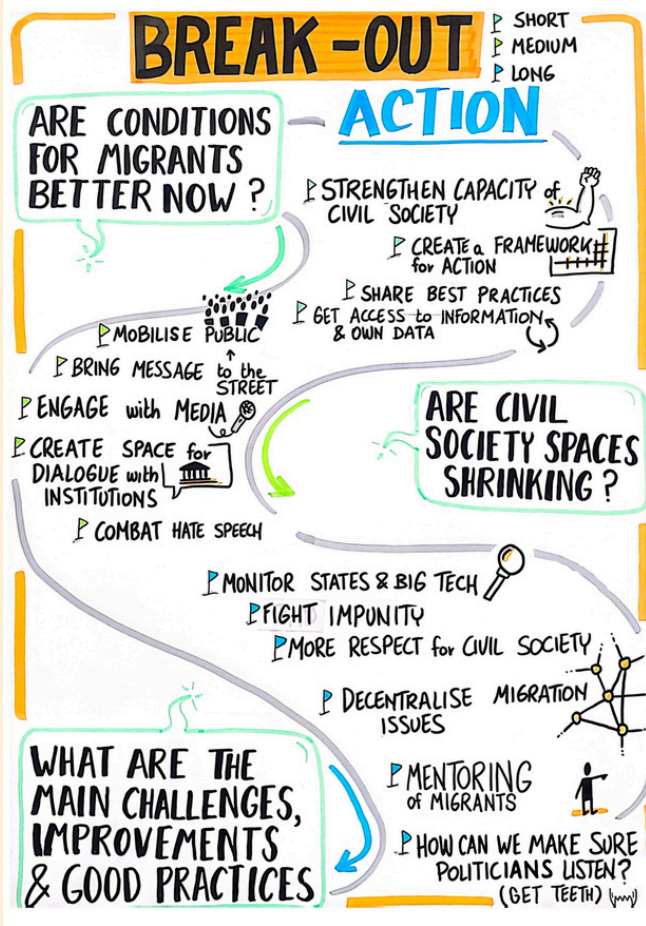 BREAK-OUT
SHORT
MEDIUM
LONG
ACTION
ARE CONDITIONS
FOR MIGRANTS
BETTER NOW?
STRENGTHEN CAPACITY of
CIVIL SOCIETY
CREATE a FRAMEWORK
for ACTION
SHARE BEST PRACTICES
GET ACCESS to INFORMATION
& OWN DATA
MOBILISE PUBLIC
BRING MESSAGE to the
STREET
ENGAGE with MEDIA
CREATE SPACE for
DIALOGUE with
INSTITUTIONS
COMBAT HATE SPEECH
ARE CIVIL
SOCIETY SPACES
SHRINKING?
MONITOR STATES & BIG TECH
FIGHT IMPUNITY
MORE RESPECT for CIVIL SOCIETY
DECENTRALISE MIGRATION
ISSUES
MENTORING
of MIGRANTS
HOW CAN WE MAKE SURE
POLITICIANS LISTEN?
(GET TEETH)
WHAT ARE THE
MAIN CHALLENGES,
IMPROVEMENTS
& GOOD PRACTICES